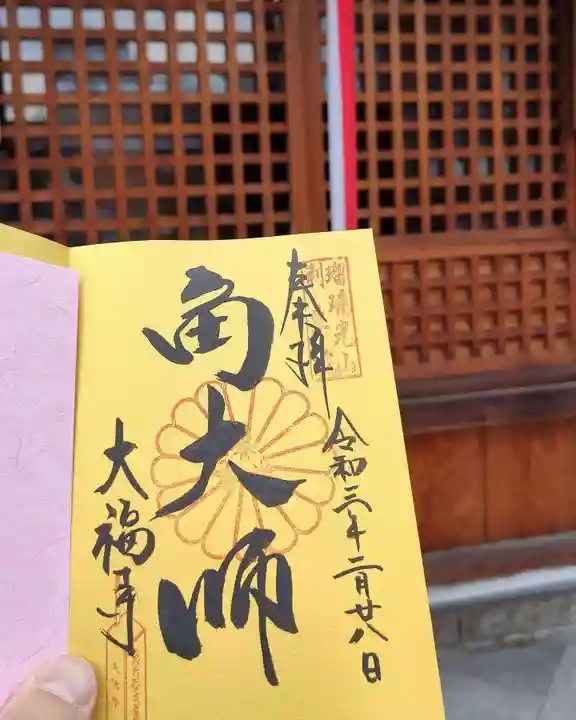 奉拝
瑠璃光山
令和三年二月廿八日
角大師
大福寺